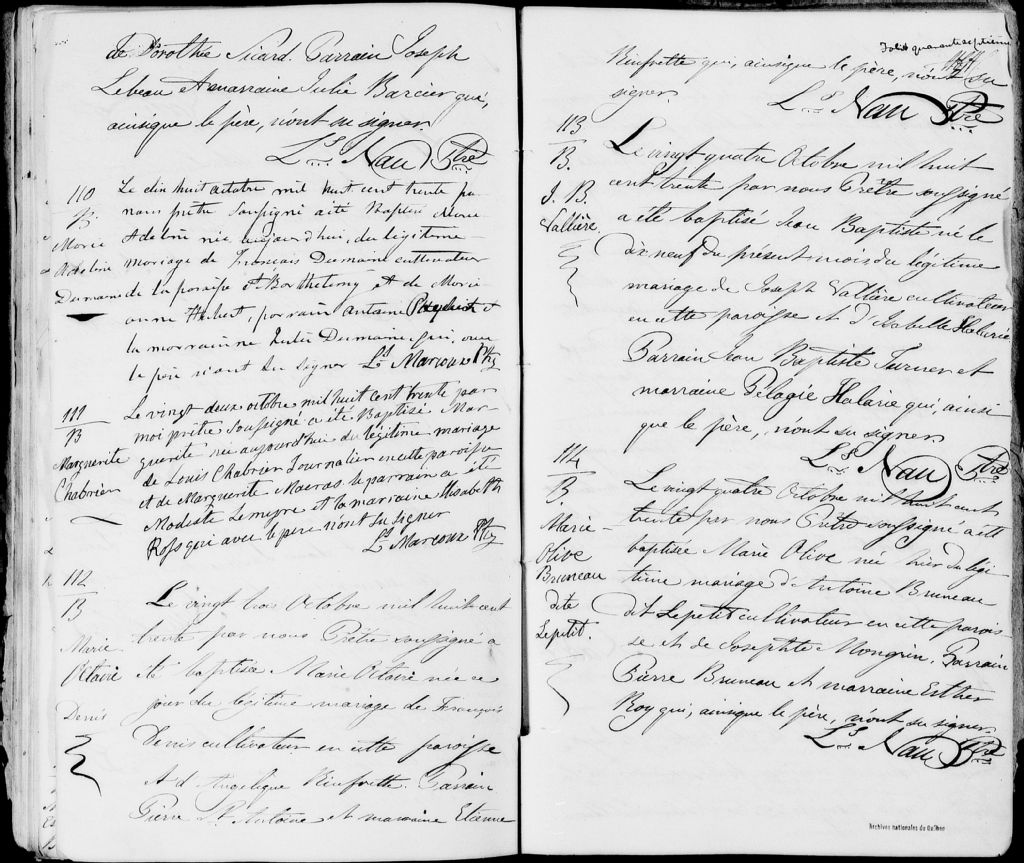 de Dorothée Sicard. Parrain Joseph
Lebeau et marraine Julie Barcier qui,
ainsique le père, n'ont su signer.
Ls Nau Ptre
110
B
Marie
Adeline
Dumaine
Le dix huit octobre mil huit cent trente par
nous prêtre soussigné a été Baptisé Marie
Adeline née aujourd'hui, du légitime
mariage de François Dumaine cultivateur
de la paroisse St Barthelemy et de Marie
anne Hubert, parrain Antoine et
la marraine Julie Dumaine qui, avec
le père n'ont su signer Ls Marcoux Ptre
111
B
Marguerite
Chabrier
Le vingt deux octobre mil huit cent trente par
moi prêtre soussigné a été Baptisé Mar-
guerite née aujourd'hui du légitime mariage
de Louis Chabrier Journalier en cette paroisse
et de Marguerite Maeras le parrain a été
Modeste Lemyre et la marraine Elisabeth
Ross qui avec le pere n'ont su signer
Ls Marcoux Ptre
112
B
Marie
Octaire
Denis
Le vingt trois Octobre mil huit cent
trente par nous Prêtre soussigné a
été baptisée Marie Octaire née ce
jour du légitime mariage de François
Denis cultivateur en cette paroisse
et d'Angelique Rinfrette. Parrain
Pierre St Antoine et marraine Etienne
Folio quarante septième
Rinfrette qui, ainsique le père, n'ont su
signer.
Ls Nau Ptre
113
B.
J. B.
Vallière
Le vingt quatre Octobre mil huit
cent trente par nous Prêtre soussigné
a été baptisé Jean Baptiste né le
dix neuf du présent mois du légitime
mariage de Joseph Vallière cultivateur
en cette paroisse et d'Isabelle Halarie
Parrain Jean Baptiste Turner et
marraine Pélagie Halarie qui, ainsi
que le père, n'ont su signer
Ls Nau Ptre
114
B
Marie
Olive
Bruneau
dite
Lepetit.
Le vingt quatre Octobre mil huit cent
trente par nous Prêtre soussigné a été
baptisée Marie Olive née hier du légi-
time mariage d'Antoine Bruneau
dit Lepetit cultivateur en cette parois
se et de Josephte Mongrin. Parrain
Pierre Bruneau et marraine Esther
Roy qui, ainsique le père, n'ont su signer
Ls Nau Ptre
Archives nationales du Québec